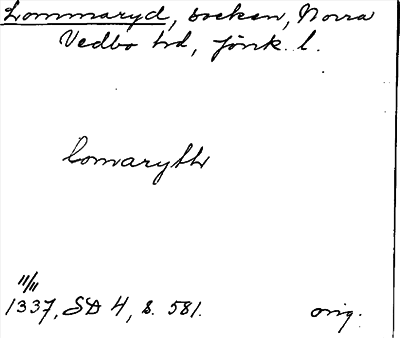 Lommaryd, socken, Norra
Vedbo hd, Jönk. l.
Lomarythr
11/11
1337, SD 4, s. 581. orig.